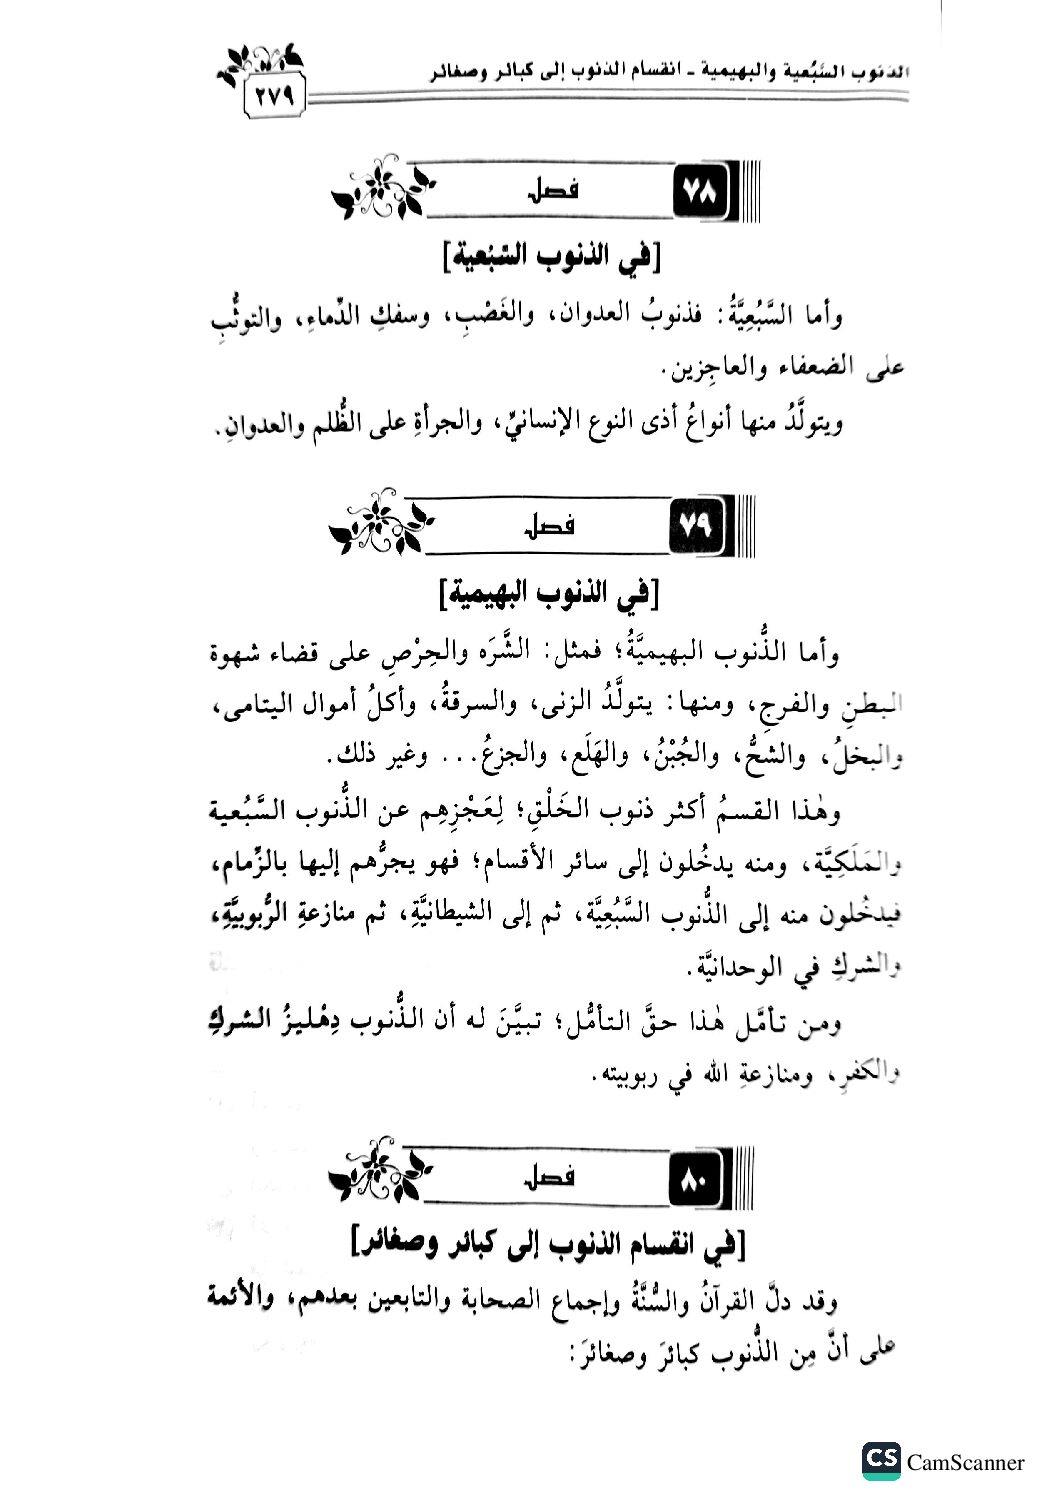 الذنوب السَّبُعية والبهيمية - انقسام الذنوب إلى كبائر وصغائر
٢٧٩
٧٨ فصل
[في الذنوب السَّبُعية]
وأما السَّبُعِيَّةُ: فذنوبُ العدوان، والغَصْبِ، وسفكِ الدِّماءِ، والتوثُّبِ
على الضعفاء والعاجِزين.
ويتولَّدُ منها أنواعُ أذى النوع الإنسانيِّ، والجرأةِ على الظُّلم والعدوانِ.
٧٩ فصل
[في الذنوب البهيمية]
وأما الذُّنوب البهيميَّةُ؛ فمثل: الشَّرَه والحِرْصِ على قضاء شهوة
البطنِ والفرجِ، ومنها: يتولَّدُ الزنى، والسرقةُ، وأكلُ أموال اليتامى،
والبخلُ، والشحُّ، والجُبْنُ، والهَلَع، والجزعُ... وغير ذلك.
وهٰذا القسمُ أكثر ذنوب الخَلْقِ؛ لِعَجْزِهِم عن الذُّنوب السَّبُعية
والمَلَكِيَّة، ومنه يدخُلون إلى سائر الأقسام؛ فهو يجرُّهم إليها بالزِّمام،
فيدخُلون منه إلى الذُّنوب السَّبُعِيَّة، ثم إلى الشيطانيَّةِ، ثم منازعةِ الرُّبوبيَّةِ،
والشركِ في الوحدانيَّة.
ومن تأمَّل هٰذا حقَّ التأمُّل؛ تبيَّنَ له أن الذُّنوب دِهْليزُ الشركِ
والكفرِ، ومنازعةِ الله في ربوبيته.
٨٠ فصل
[في انقسام الذنوب إلى كبائر وصغائر]
وقد دلَّ القرآنُ والسُّنَّةُ وإجماع الصحابة والتابعين بعدهم، والأئمة
على أنَّ مِن الذُّنوب كبائرَ وصغائرَ:
CS CamScanner